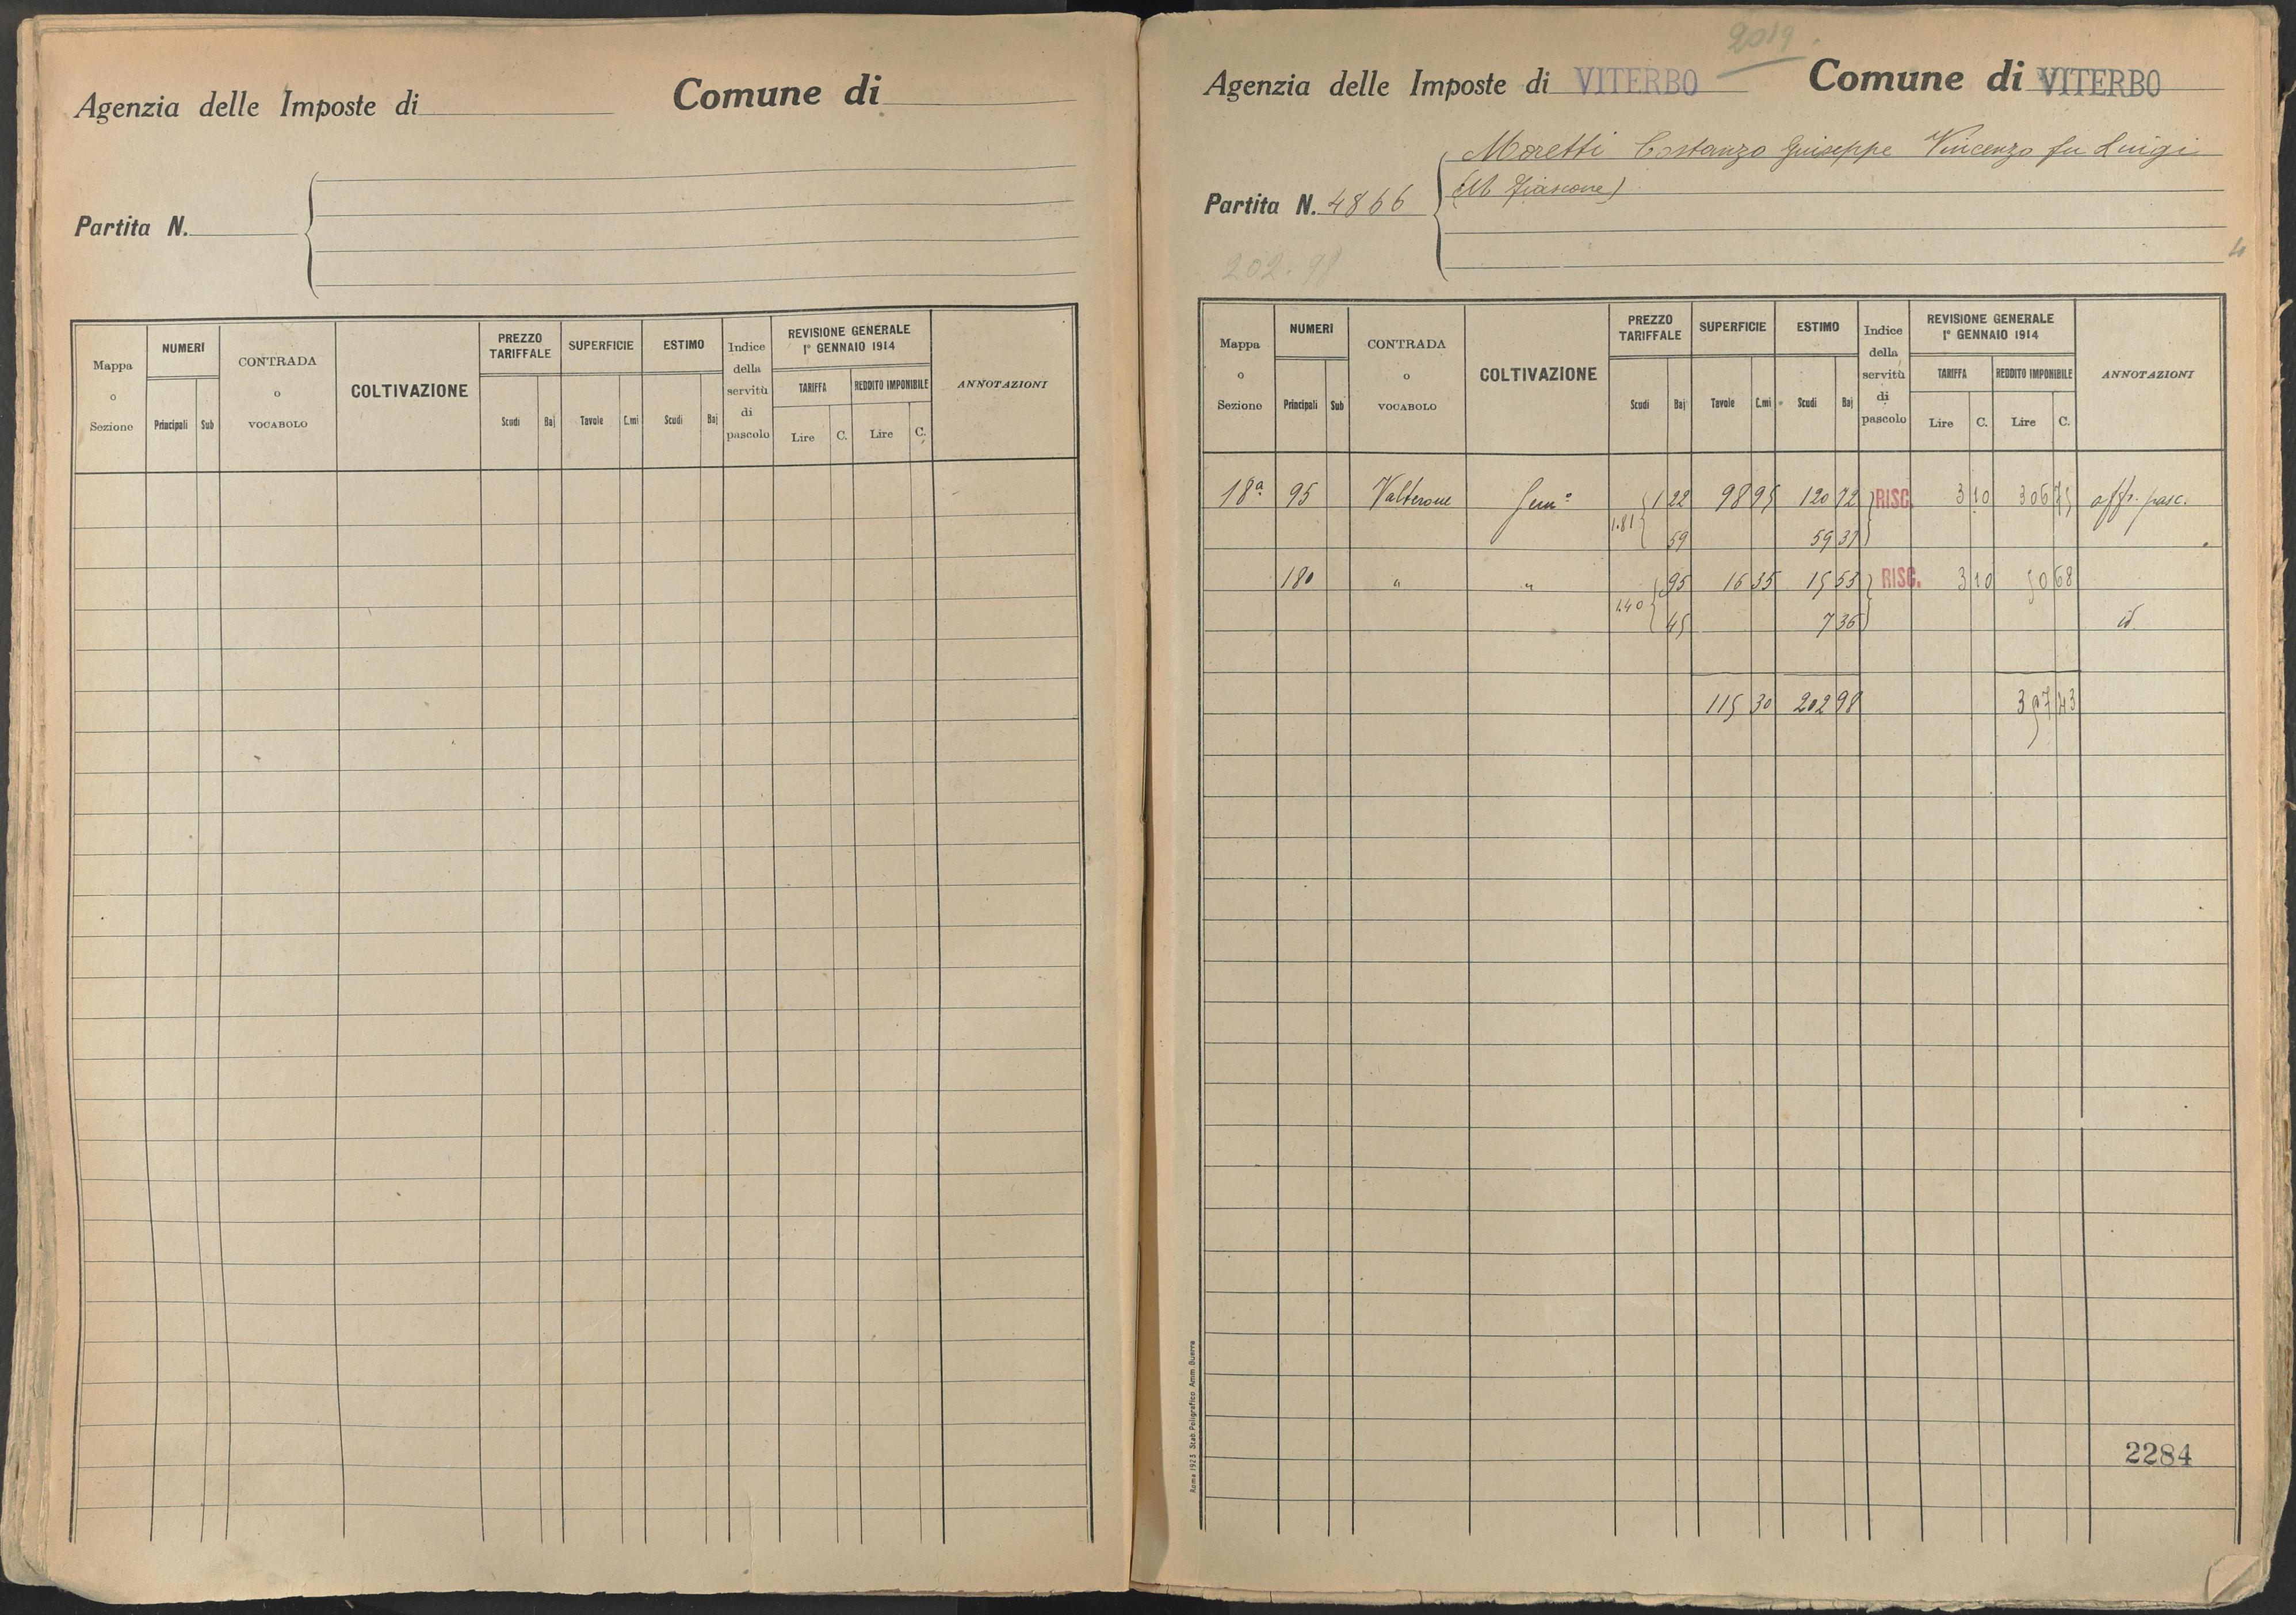 Agenzia delle Imposte di
Comune di
Partita N.
Mappa o Sezione
NUMERI
Principali Sub
CONTRADA o VOCABOLO
COLTIVAZIONE
PREZZO TARIFFALE
Scudi Baj
SUPERFICIE
Tavole C.mi
ESTIMO
Scudi Baj
Indice della servitù di pascolo
REVISIONE GENERALE
1° GENNAIO 1914
TARIFFA REDDITO IMPONIBILE
Lire C. Lire C.
ANNOTAZIONI
2019.
Agenzia delle Imposte di VITERBO Comune di VITERBO
Moretti Costanzo Giuseppe Vincenzo fu Luigi
(M. Fiascone)
Partita N. 4866
4
202.98
Mappa o Sezione
NUMERI
Principali Sub
CONTRADA o VOCABOLO
COLTIVAZIONE
PREZZO TARIFFALE
Scudi Baj
SUPERFICIE
Tavole C.mi
ESTIMO
Scudi Baj
Indice della servitù di pascolo
REVISIONE GENERALE
1° GENNAIO 1914
TARIFFA REDDITO IMPONIBILE
Lire C. Lire C.
ANNOTAZIONI
18ª 95 Valterone Sem° 1 22 98 95 120 72 RISC. 3 10 306 75 aff. pasc.
1.81 59 59 37
180 " " 95 16 35 15 53 RISC. 3 10 50 68
1.40 45 7 36 id
115 30 202 98 357 43
2284
Roma 1925 Stab. Poligrafico Amm. Guerra